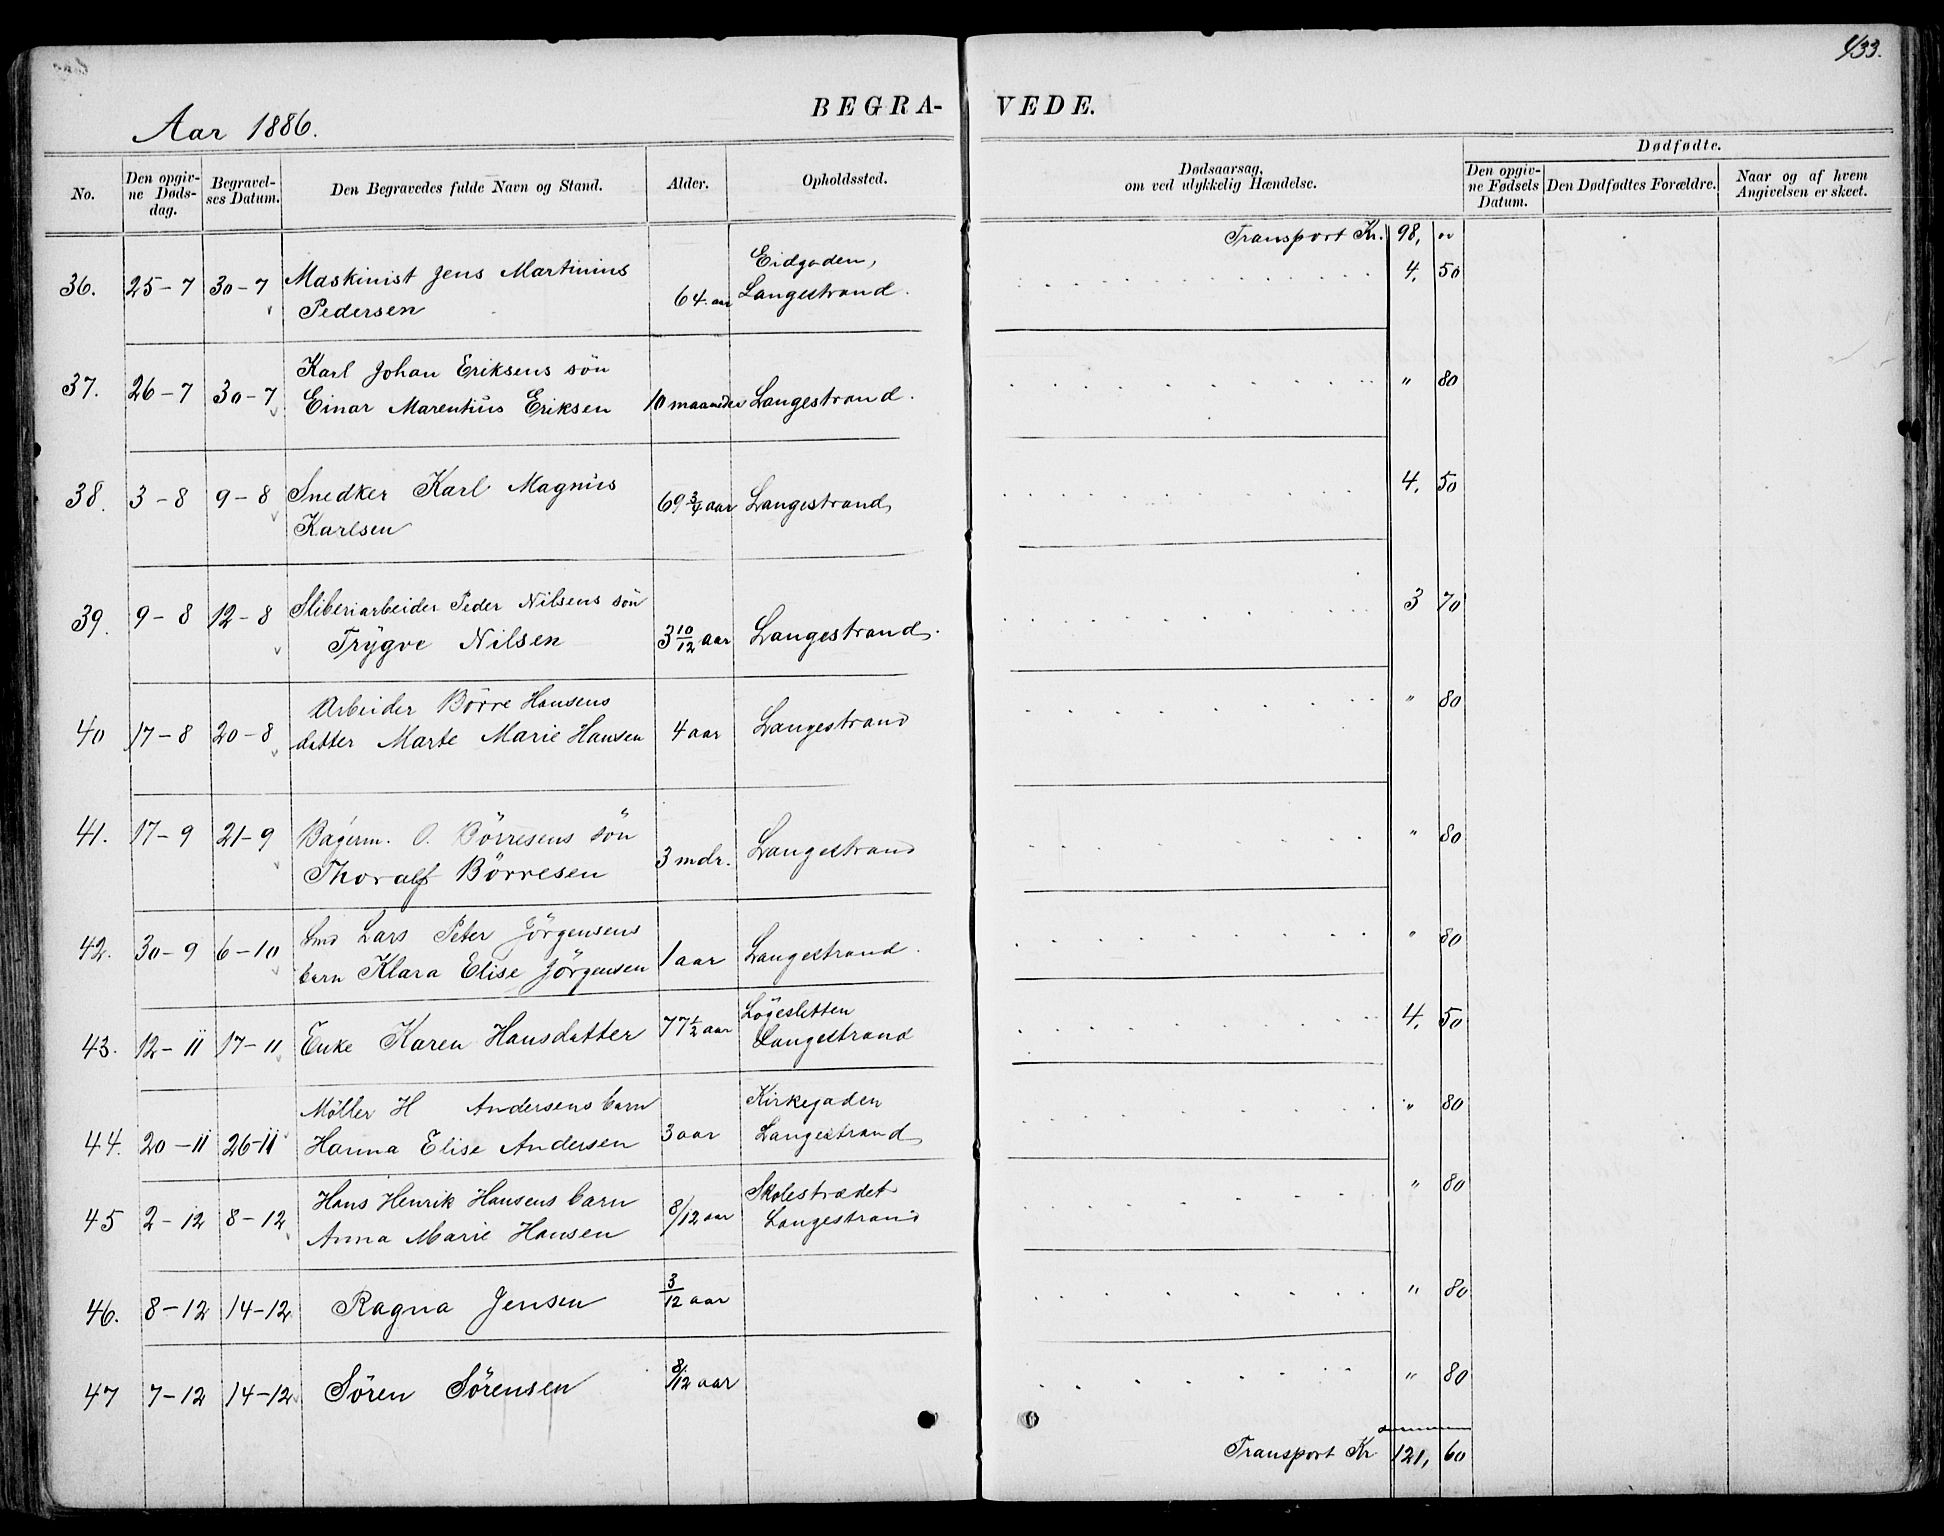 433.
BEGRAVEDE.
Aar 1886.
No. | Den opgivne Dødsdag. | Begravelses Datum. | Den Begravedes fulde Navn og Stand. | Alder. | Opholdssted. | Dødsaarsag, om ved ulykkelig Hændelse. | Dødfødte.
Den opgivne Fødsels Datum. | Den Dødfødtes Forældre. | Naar og af hvem Angivelsen er skeet.
Transport Kr. 98, "
36. 25-7 30-7 Maskinist Jens Martinius Pedersen 64 aar Eidgaden, Langestrand. 4, 50
37. 26-7 30-7 Karl Johan Eriksens sön Einar Marentius Eriksen 10 maaneder Langestrand. " 80
38. 3-8 9-8 Snedker Karl Magnus Karlsen 69 3/4 aar Langestrand 4, 50
39. 9-8 12-8 Sliberiarbeider Peder Nilsens sön Trygve Nilsen 3 10/12 aar Langestrand. 3 70
40 17-8 20-8 Arbeider Börre Hansens datter Marte Marie Hansen 4 aar Langestrand " 80
41. 17-9 21-9 Bagerm. O. Börresens sön Thoralf Börresen 3 mdr. Langestrand " 80
42. 30-9 6-10 Smd Lars Peter Jörgensens barn Klara Elise Jörgensen 1 aar Langestrand. " 80
43. 12-11 17-11 Enke Karen Hansdatter 77 1/2 aar Lögesletten Langestrand 4, 50
44. 20-11 26-11 Möller H Andersens barn Hanna Elise Andersen 3 aar Kirkegaden Langestrand " 80
45 2-12 8-12 Hans Henrik Hansens barn Anna Marie Hansen 8/12 aar Skolestrædet Langestrand " 80
46. 8-12 14-12 Ragna Jensen 3/12 aar " 80
47 7-12 14-12 Sören Sörensen 8/12 aar " 80
Transport Kr 121, 60